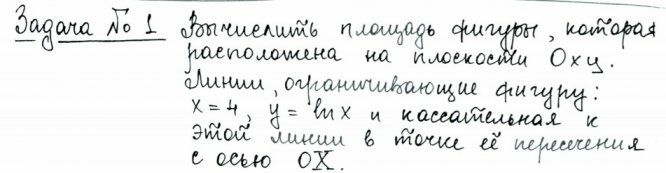 Задача № 1 Вычислить площадь фигуры, которая
расположена на плоскости Oxy.
Линии, ограничивающие фигуру:
x=4, y= ln x и касательная к
этой линии в точке её пересечения
с осью OX.